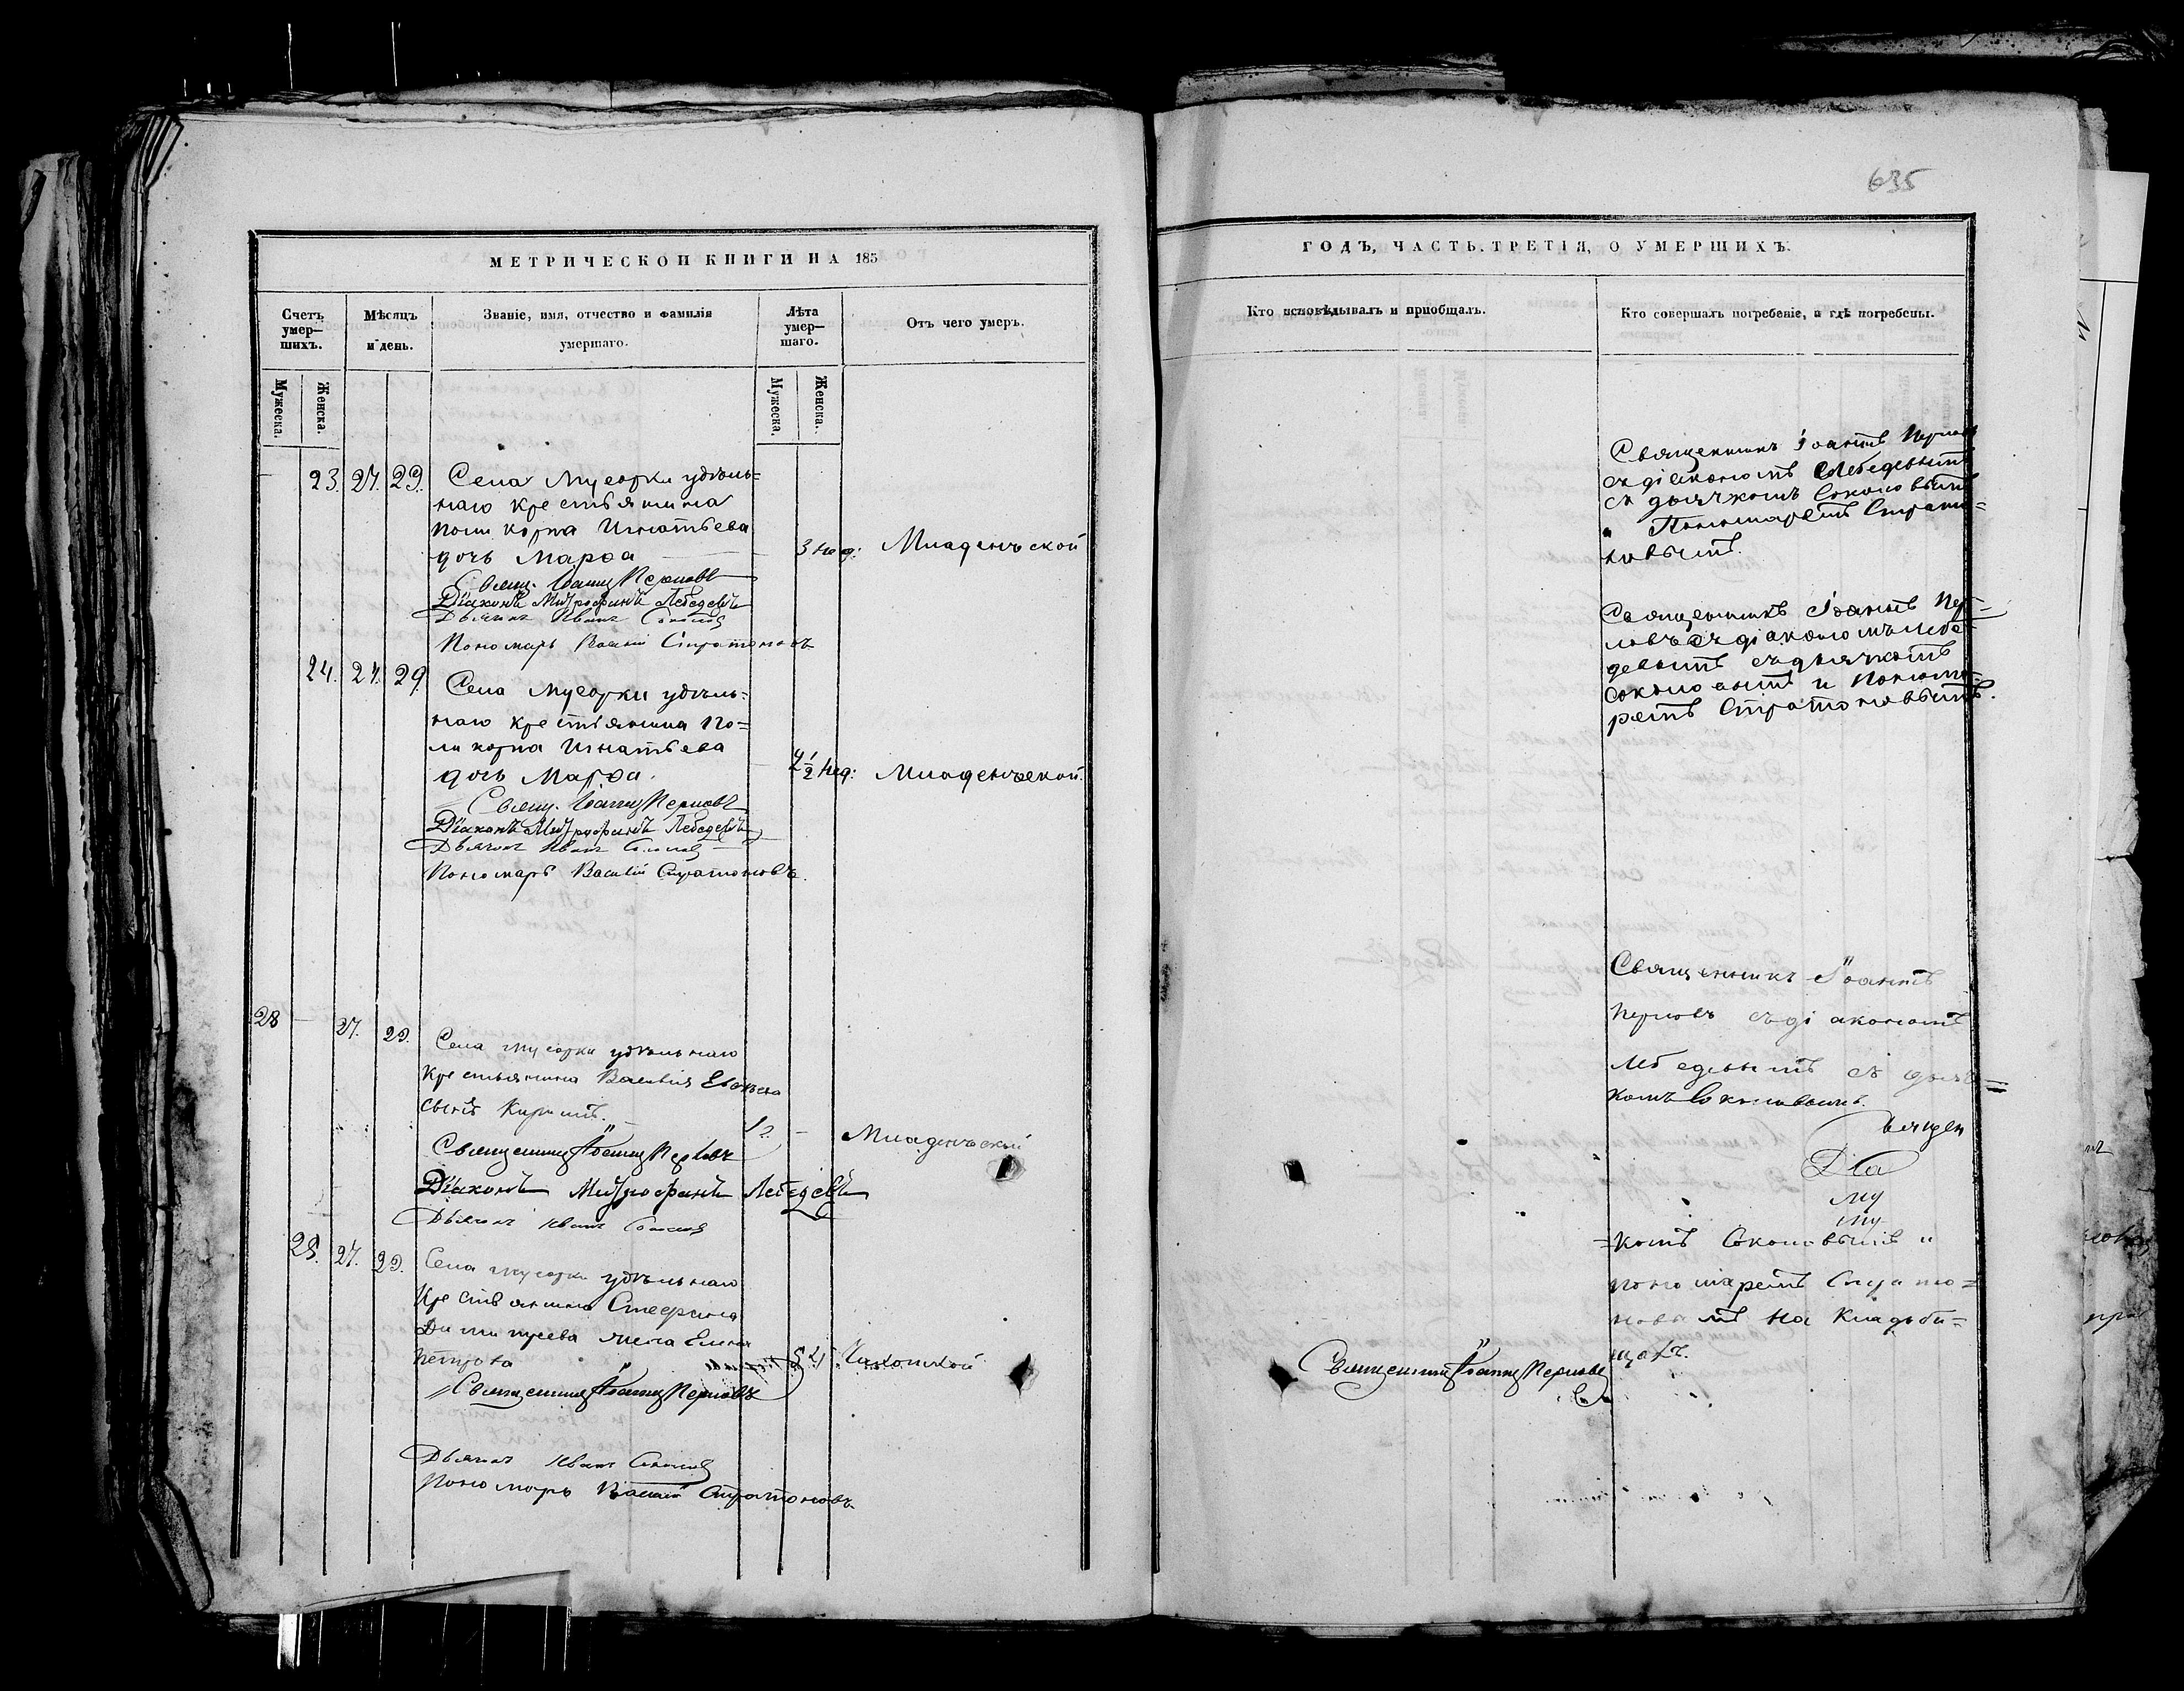 635
МЕТРИЧЕСКОЙ КНИГИ НА 185
ГОДЪ, ЧАСТЬ ТРЕТІЯ, О УМЕРШИХЪ.
Счетъ умер—шихъ.
Мѣсяцъ и день.
Званіе, имя, отчество и фамилія умершаго.
Лѣта умер—шаго.
Отъ чего умеръ.
Кто исповѣдывалъ и пріобщалъ.
Кто совершалъ погребеніе, и гдѣ погребены.
Мужеска.
Женска.
Мужеска.
Женска.
23. 27. 29.
Села Мусорки удѣль=
наго крестьянина
Поликорпа Игнатьева
дочь Марѳа
3 нед: Младенческой
Свящ. Іоаннъ Перловъ
Діаконъ Митрофанъ Лебедевъ
Дьячекъ Иванъ Соколовъ
Пономарь Василій Стратоновъ
Священникъ Іоаннъ Перловъ
съ діакономъ Лебедевымъ
съ дьячкомъ Соколовымъ
и Пономаремъ Страто=
новымъ.
24. 27. 29.
Села Мусорки удѣль=
наго крестьянина По=
ликорпа Игнатьева
дочь Марѳа.
4 1/2 нед: Младенческой.
Свящ. Іоаннъ Перловъ
Діаконъ Митрофанъ Лебедевъ
Дьячекъ Иванъ Соколовъ
Пономарь Василій Стратоновъ.
Священникъ Іоаннъ Пер=
ловъ съ діакономъ Лебе=
девымъ съ дьячкомъ
Соколовымъ и Понома=
ремъ Стратоновымъ.
28 27. 29.
Села Мусорки удѣльнаго
крестьянина Василія
сынъ
Младенческой
Священникъ Іоаннъ Перловъ
Діаконъ Митрофанъ Лебедевъ
Дьячекъ Иванъ Соколовъ
Священникъ Іоаннъ
Перловъ съ діакономъ
Лебедевымъ съ дьяч=
комъ Соколовымъ.
25. 27. 29.
Села Мусорки удѣльнаго
крестьянина Стефана
жена Елена
Петрова
Чахоткой
Священникъ Іоаннъ Перловъ
Дьячекъ Иванъ Соколовъ
Пономарь Василій Стратоновъ
Священникъ Іоаннъ Перловъ
=комъ Соколовымъ и
пономаремъ Страто=
новымъ на кладби=
щахъ.